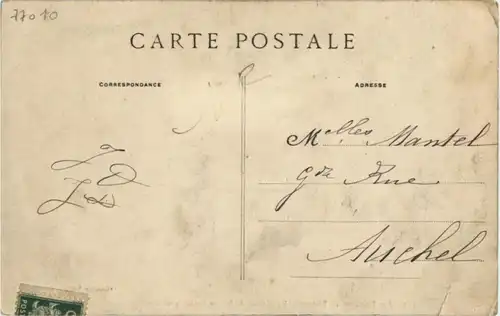 77010
CARTE POSTALE
CORRESPONDANCE
ADRESSE
Melles Mantel
gde Rue
Auchel